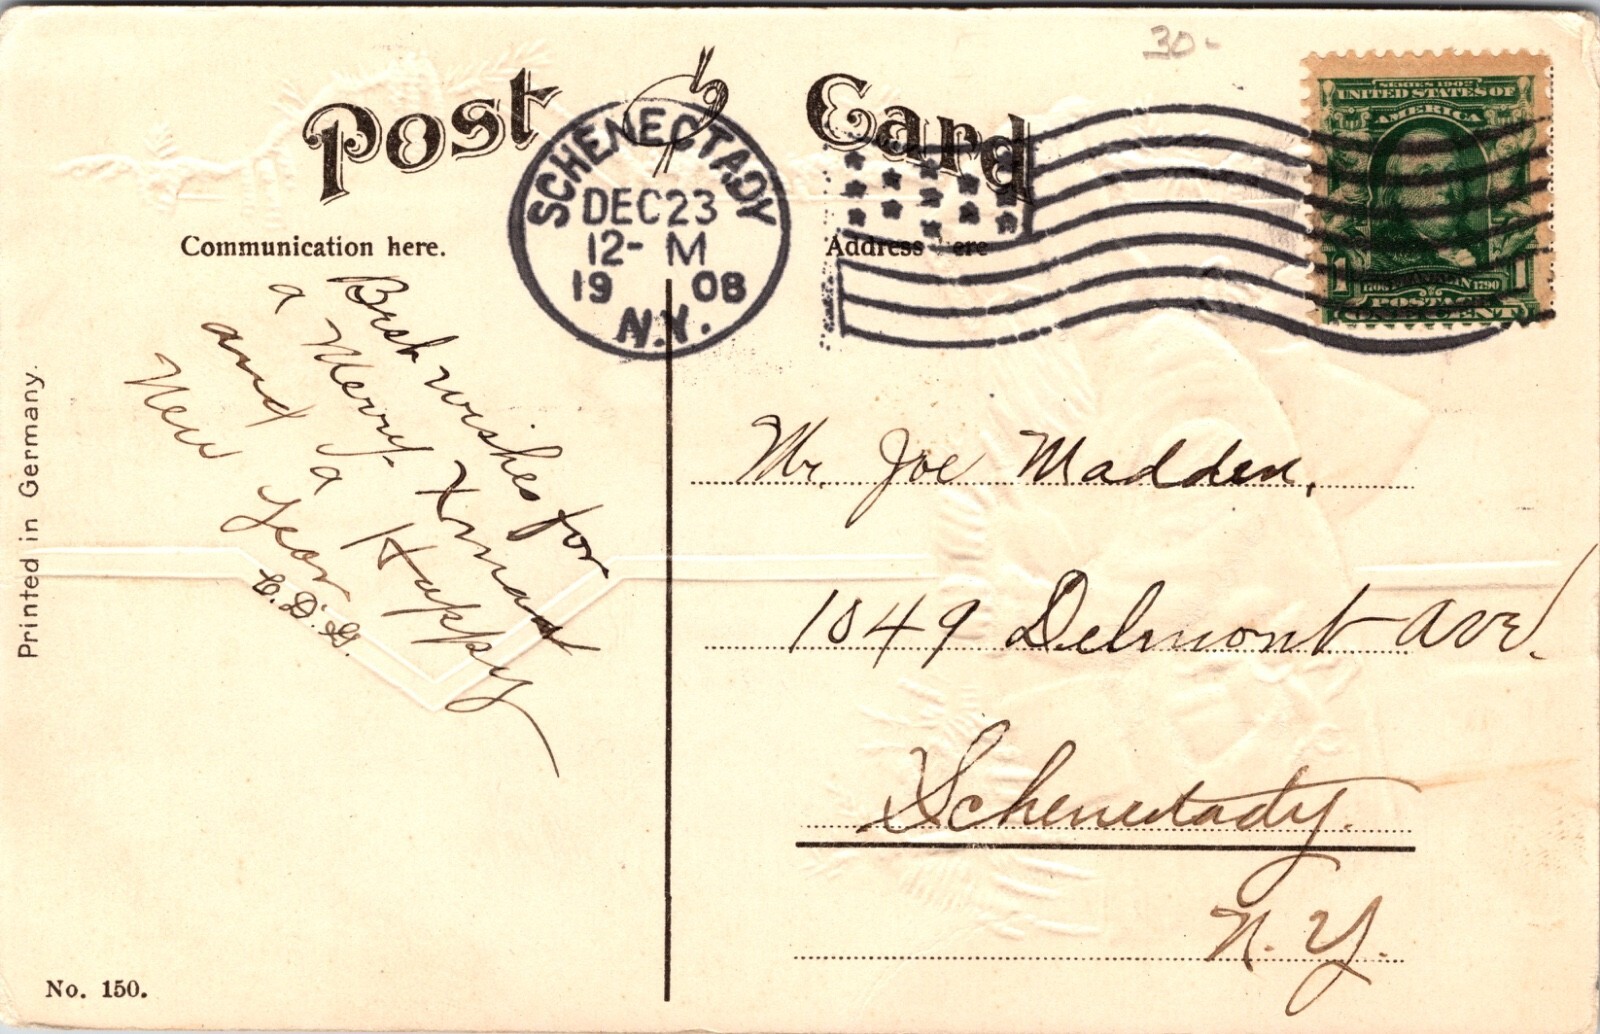 30-
Post Card
SERIES 1902
UNITED STATES OF
AMERICA
1 1
1706 FRANKLIN 1790
POSTAGE
ONE CENT
SCHENECTADY
DEC 23
12- M
1908
N.Y.
Communication here.
Address here
Best wishes for
a Merry Xmas
and a Happy
New Year
C.D.G.
Mr. Joe Madden,
1049 Delmont Ave.
Schenectady.
N.Y.
Printed in Germany.
No. 150.